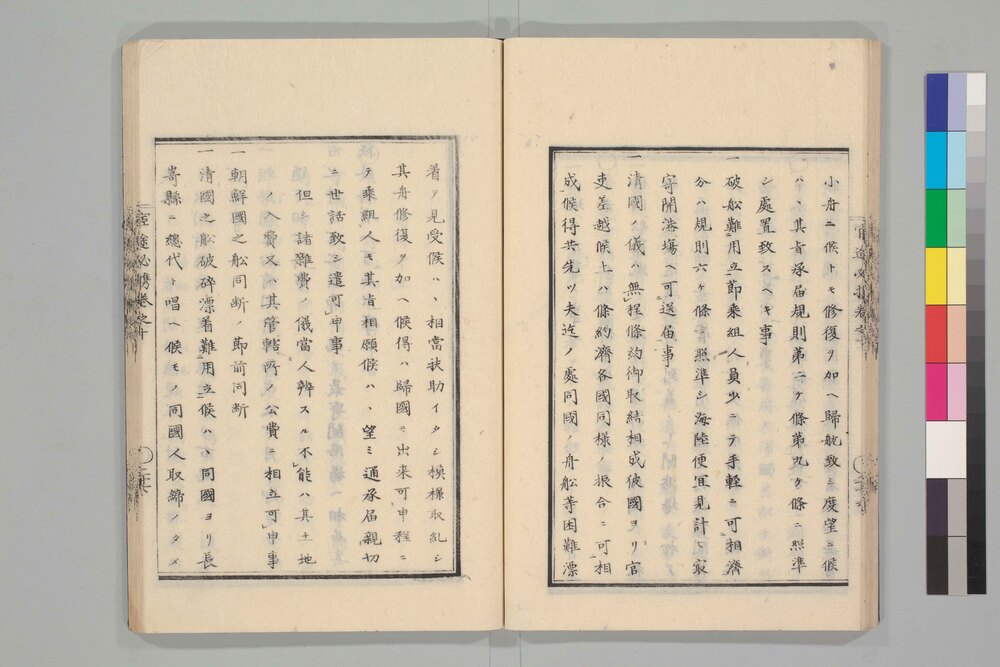 小舟ニ候トモ修復ヲ加ヘ歸航致シ度望ニ候
ハヽ其旨承届規則第二ケ條第九ケ條ニ照準
シ處置致スヘキ事
一破舩難用立節乘組人員少ニテ手輕ニ可相濟
分ハ規則六ケ條ニ照準シ海陸便宜見計ヒ最
寄開港塲ヘ可送届事
一清國ノ儀ハ無程條約御取結相成彼國ヨリ官
吏差越候上ハ條約濟各國同様ノ振合ニ可相
成候得共先ツ夫迄ノ處同國ノ舟舩等困難漂
着ヲ見受候ハヽ相當扶助イタシ模様取糺シ
其舟修復ヲ加ヘ候得ハ歸國モ出来可申程ニ
テ乘組人モ其旨相願候ハヽ望ミ通承届親切
ニ世話致シ遣可申事
但シ諸雜費ノ儀當人辨スル不能ハ其土地
ノ入費又ハ其管轄所ノ公費ニ相立可申事
一朝鮮國之舩同断ノ節前同断
一清國之舩破碎漂着難用立候ハヽ同國ヨリ長
嵜縣ニ總代ト唱ヘ候モノ同國人取締ノタメ
官途必携巻之十